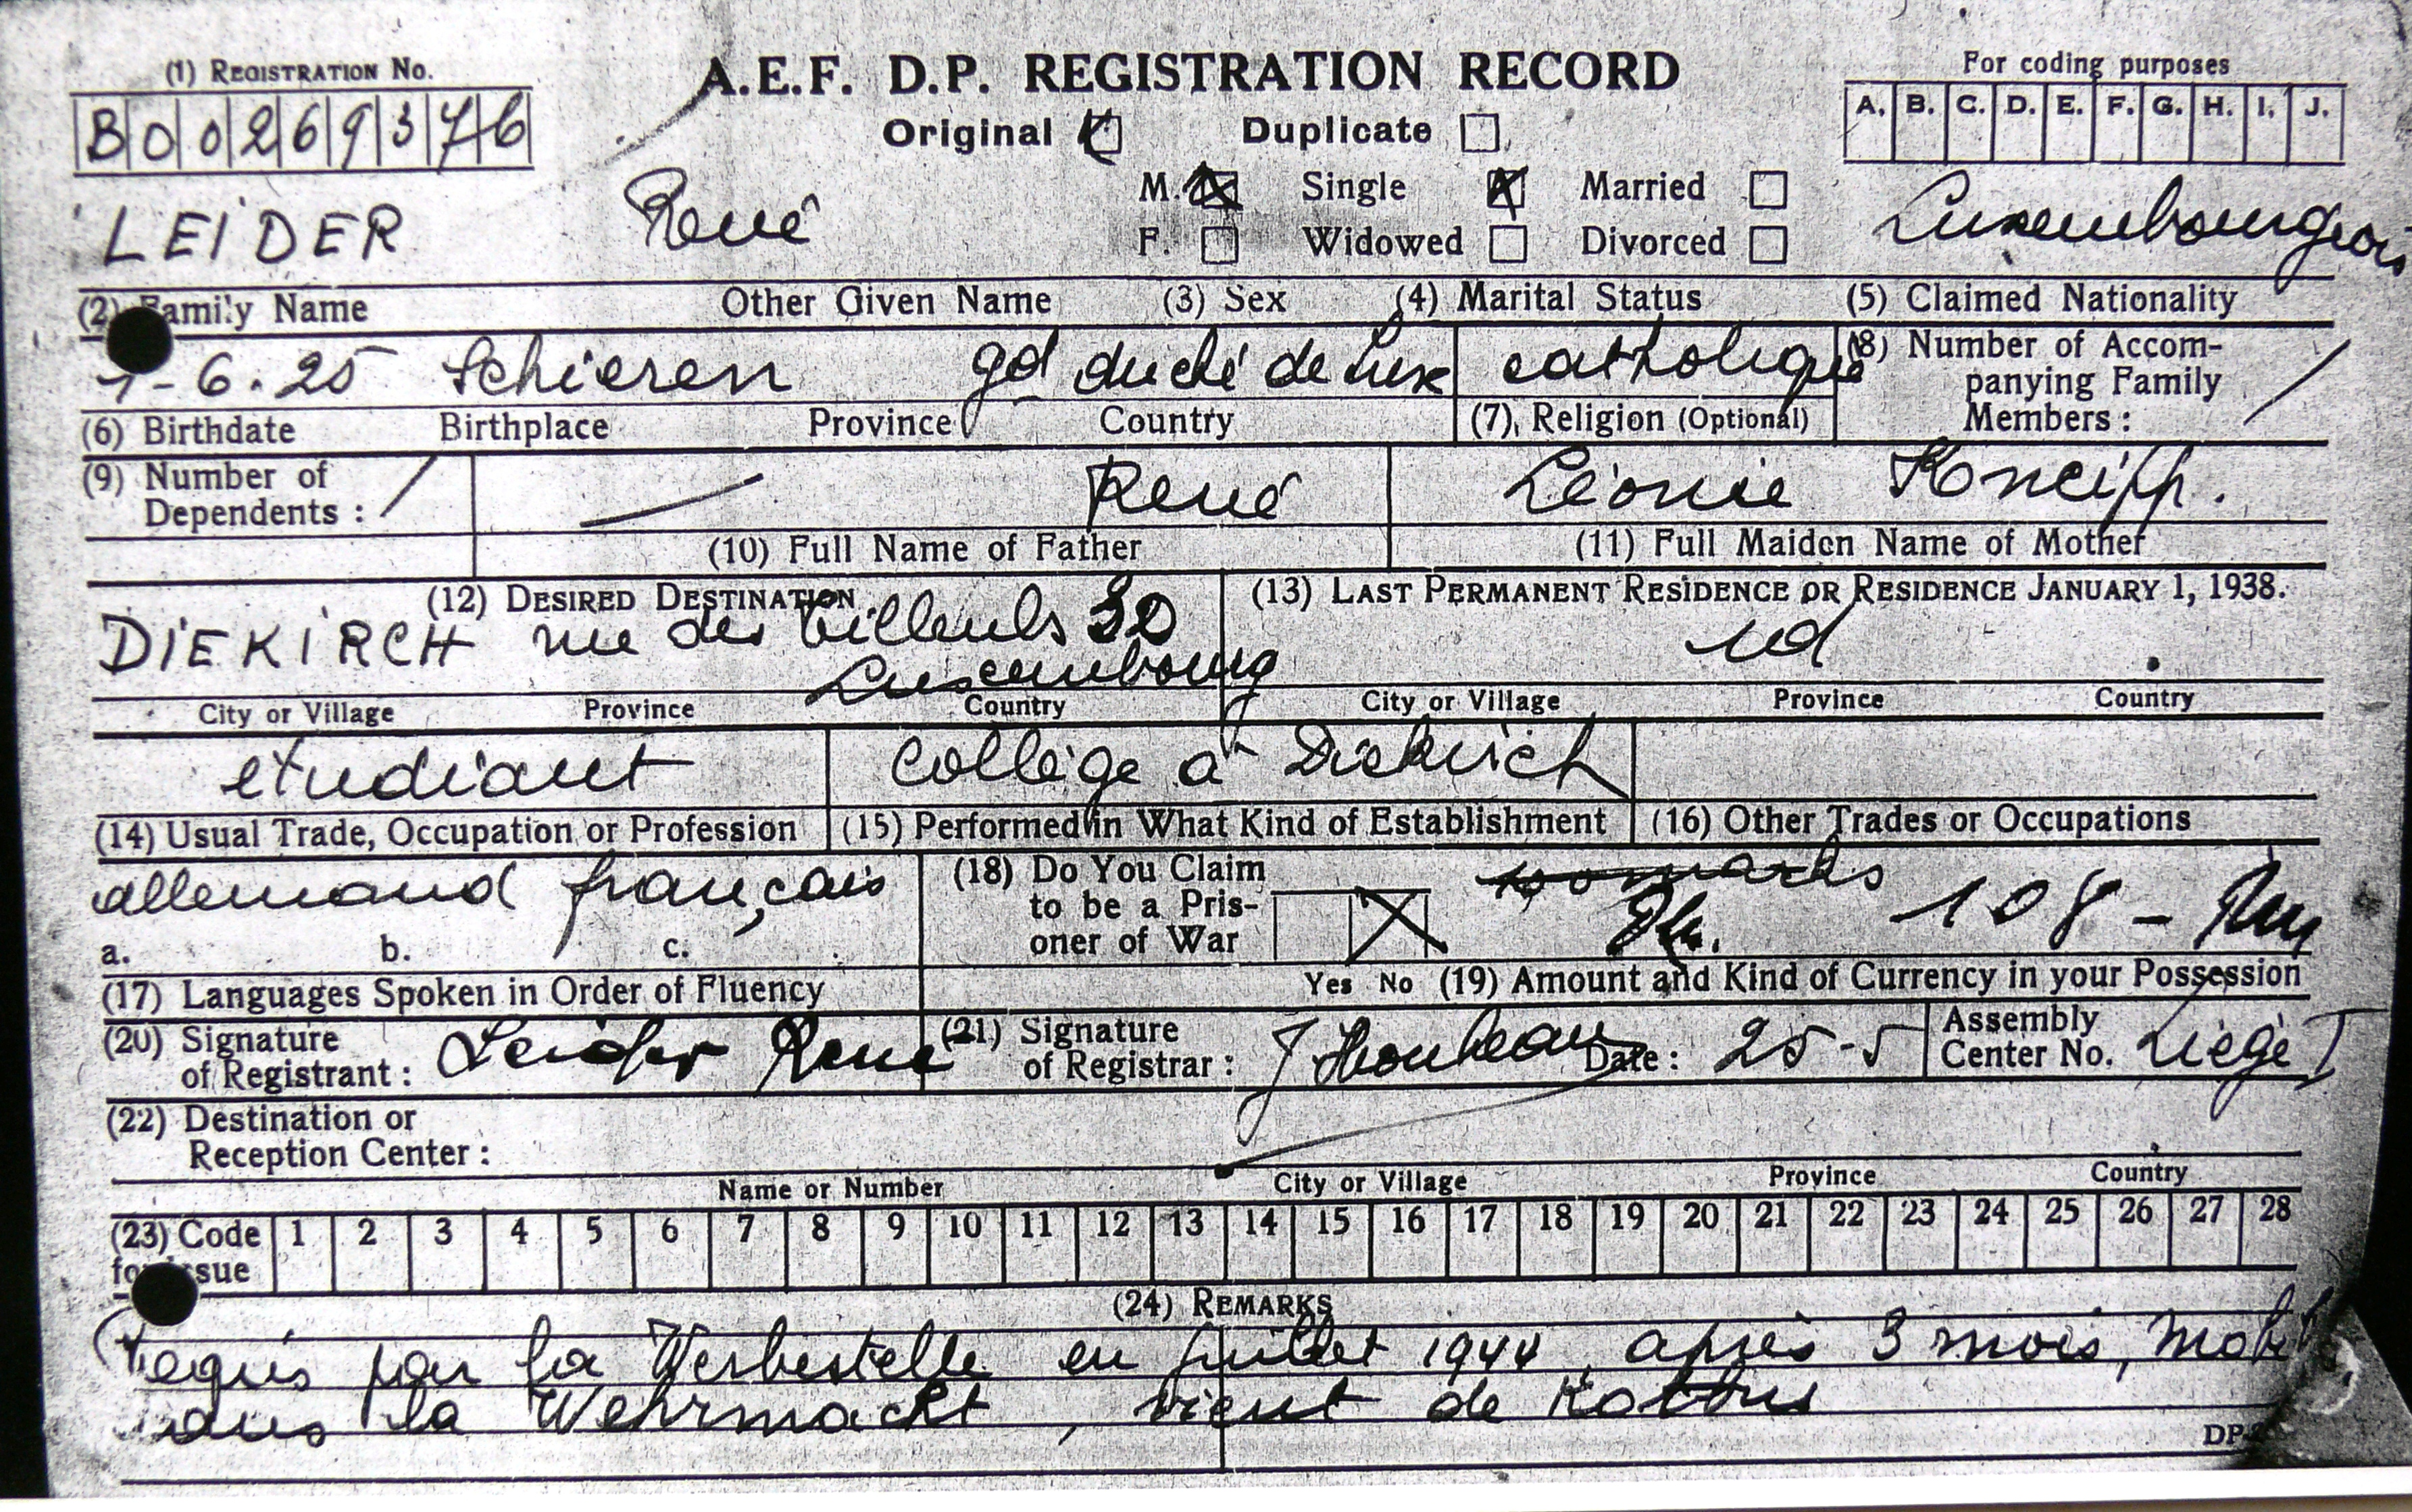 (1) REGISTRATION No.
A.E.F. D.P. REGISTRATION RECORD
For coding purposes
B 0 0 2 6 9 3 7 6
Original Duplicate
A. B. C. D. E. F. G. H. I. J.
M. Single Married
LEIDER René Luxembourgeois
F. Widowed Divorced
(2) Family Name Other Given Name (3) Sex (4) Marital Status (5) Claimed Nationality
-6.25 Schieren gd duché de Lux catholique
(8) Number of Accompanying Family Members : /
(6) Birthdate Birthplace Province Country (7) Religion (Optional)
(9) Number of Dependents : / — René Léonie Kneipp.
(10) Full Name of Father (11) Full Maiden Name of Mother
(12) DESIRED DESTINATION (13) LAST PERMANENT RESIDENCE OR RESIDENCE JANUARY 1, 1938.
DIEKIRCH rue des tilleuls 30 id
Luxembourg
City or Village Province Country City or Village Province Country
etudiant collège à Diekirch
(14) Usual Trade, Occupation or Profession (15) Performed in What Kind of Establishment (16) Other Trades or Occupations
allemand français
(18) Do You Claim to be a Prisoner of War
marks
108 -
a. b. c.
(17) Languages Spoken in Order of Fluency Yes No (19) Amount and Kind of Currency in your Possession
(20) Signature of Registrant : Leider René (21) Signature of Registrar : Date : 25-5 Assembly Center No. Liège I
(22) Destination or Reception Center :
Name or Number City or Village Province Country
(23) Code for Issue 1 2 3 4 5 6 7 8 9 10 11 12 13 14 15 16 17 18 19 20 21 22 23 24 25 26 27 28
(24) REMARKS
requis par la Werbestelle en juillet 1944, après 3 mois,
dans la Wehrmacht, vient de Kottbus
DP-